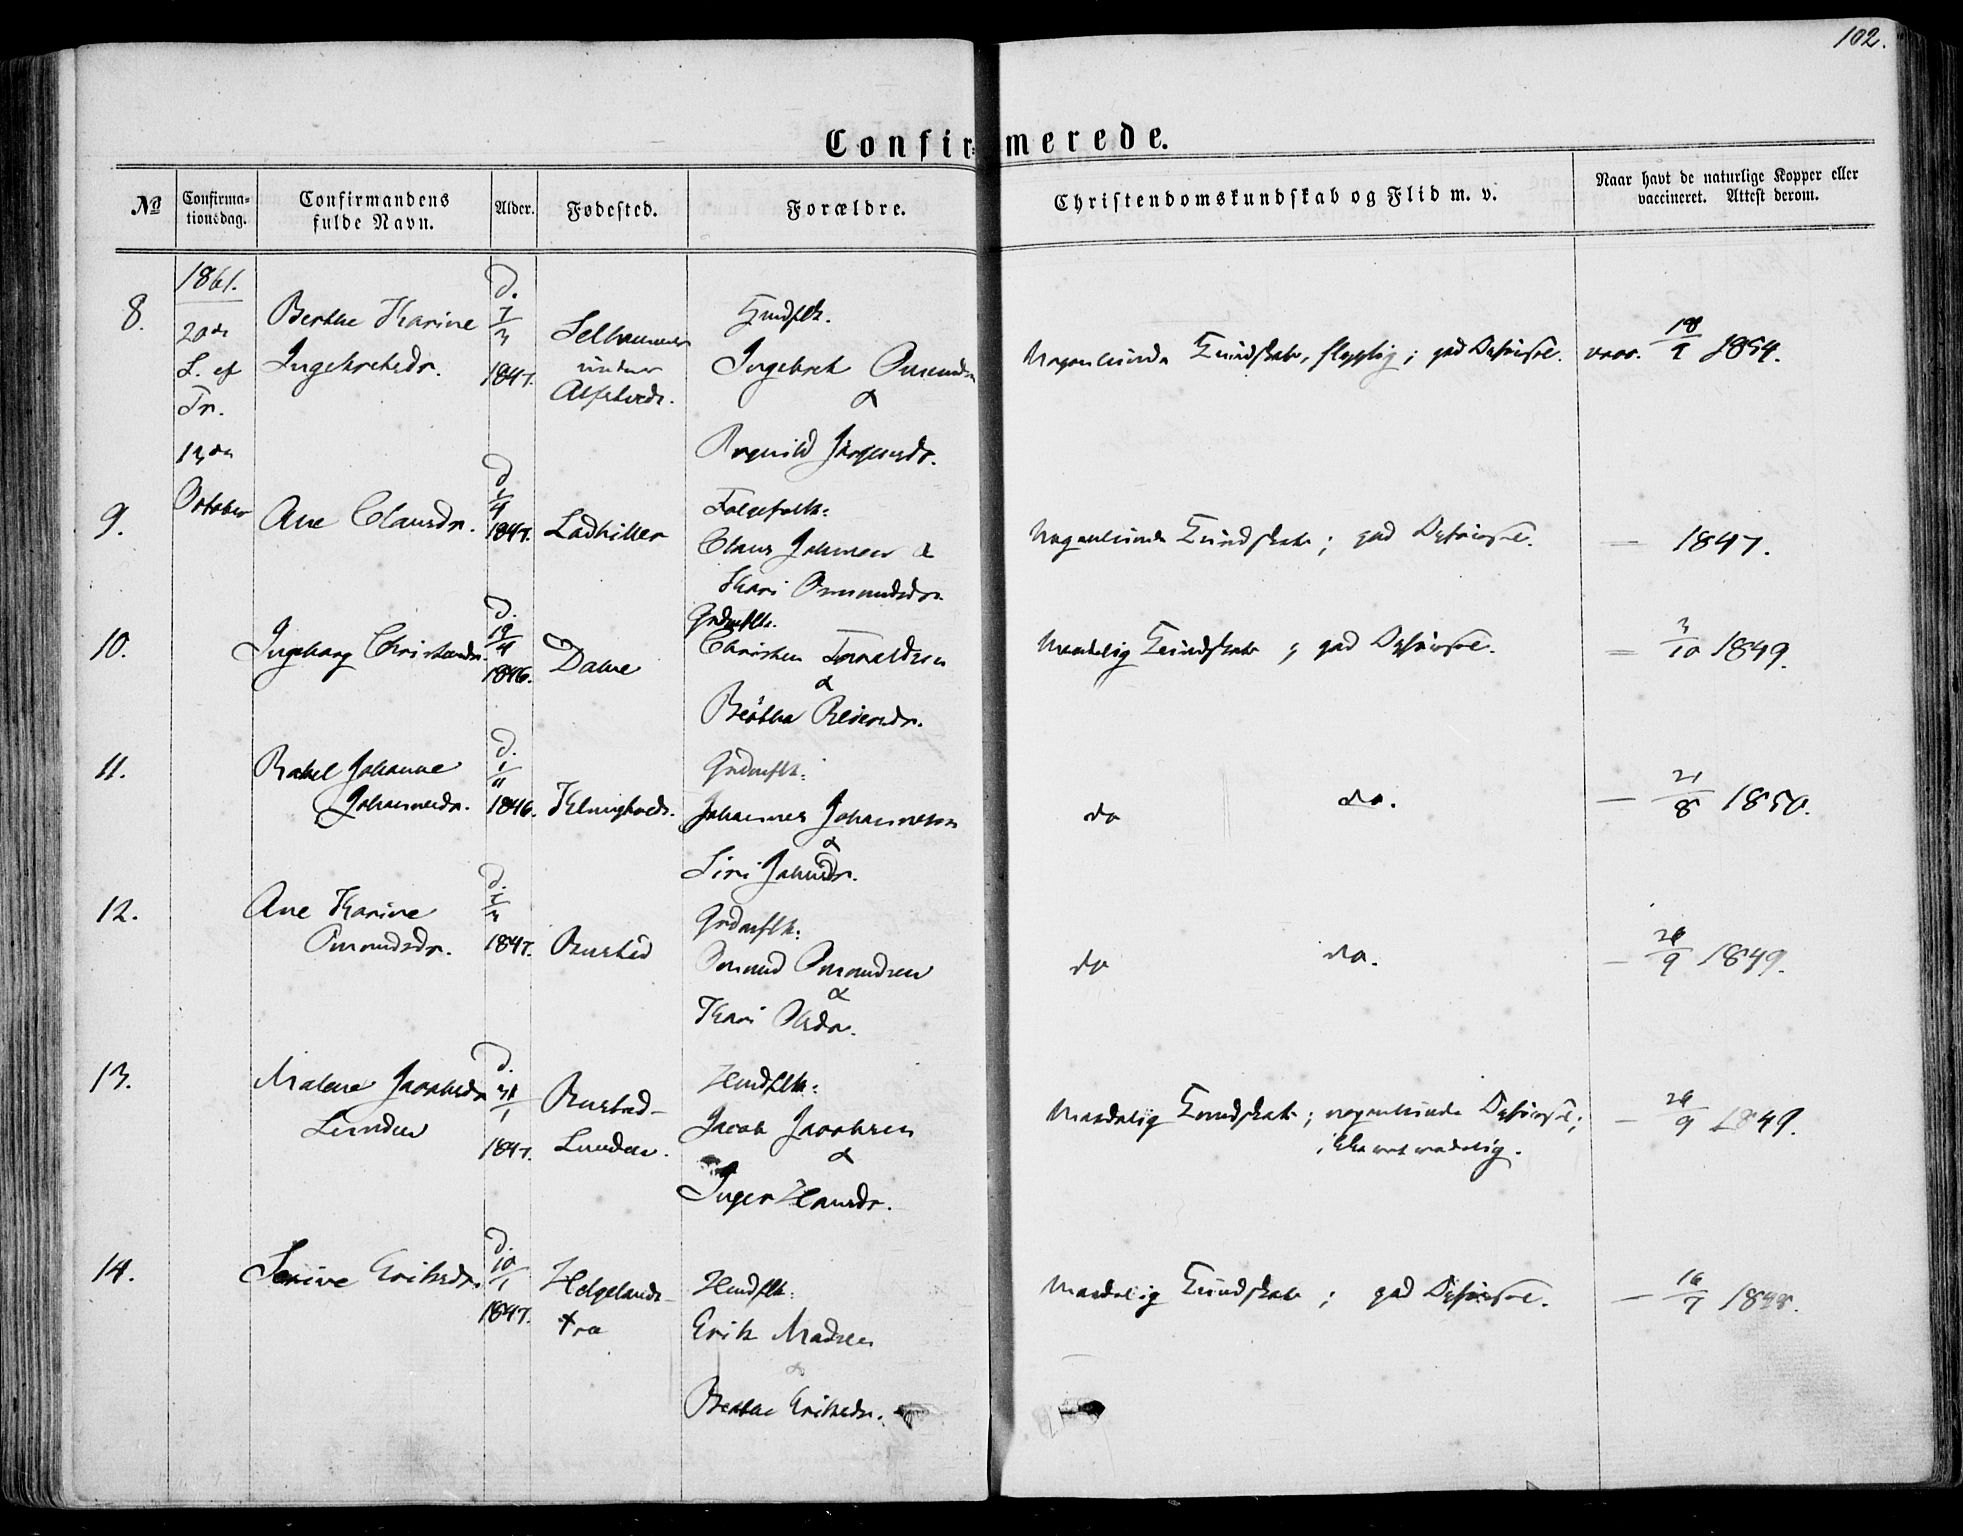 102.
Confirmerede.
No
Confirma-
tionsdag.
Confirmandens
fulde Navn.
Alder.
Fødested.
Forældre.
Christendomskundskab og Flid m. v.
Naar havt de naturlige Kopper eller
vaccineret. Attest derom.
1861.
20de
S. ef
Tr.
13de
October
8.
Berthe Karine
Ingebretsdr.
d.
7/3
1847.
under
Husflk.
Ingebret Omundsen
&
Ragnild Jørgensdr.
Nogenlunde Kundskab, flygtig; god Opførsel.
vacc. 18/9 1854.
9.
Ane Clausdr.
d
1/4
1847.
Ladhiller
Folgefolk:
Claus Johnsen &
Kari Osmundsdr.
Nogenlunde Kundskab; god Opførsel.
— 1847.
10.
Ingeborg Christensdr.
d.
19/4
1846.
Dalene
Grdmflk.
Christen Toraldsen
&
Bertha Reiersdr.
Maadelig Kundskab; god Opførsel.
= 3/10 1849.
11.
Rakel Johanne
Johannesdr.
d.
1/11
1846.
Grdmflk:
Johannes Johannesen
&
Siri Johnsdr.
do do.
— 21/8 1850.
12.
Ane Karine
Omundsdr.
d.
7/3
1847.
Rustad
Grdmflk:
Omund Omundsen
&
Kari Olsdr.
do do.
— 26/9 1849.
13.
Malene Jacobsdr
Lunden
d.
31/1
1847.
Rustad-
Lunden.
Husflk:
Jacob Jacobsen
&
Inger Hansdr.
Maadelig Kundskab; nogenlunde Opførsel;
— 26/9 1849.
14.
Serine Eriksdr.
d.
10/1
1847.
Helgelands-
træ
Husflk:
Erik Madsen
&
Berthe Eriksdr.
Maadelig Kundskab; god Opførsel.
— 16/7 1848.